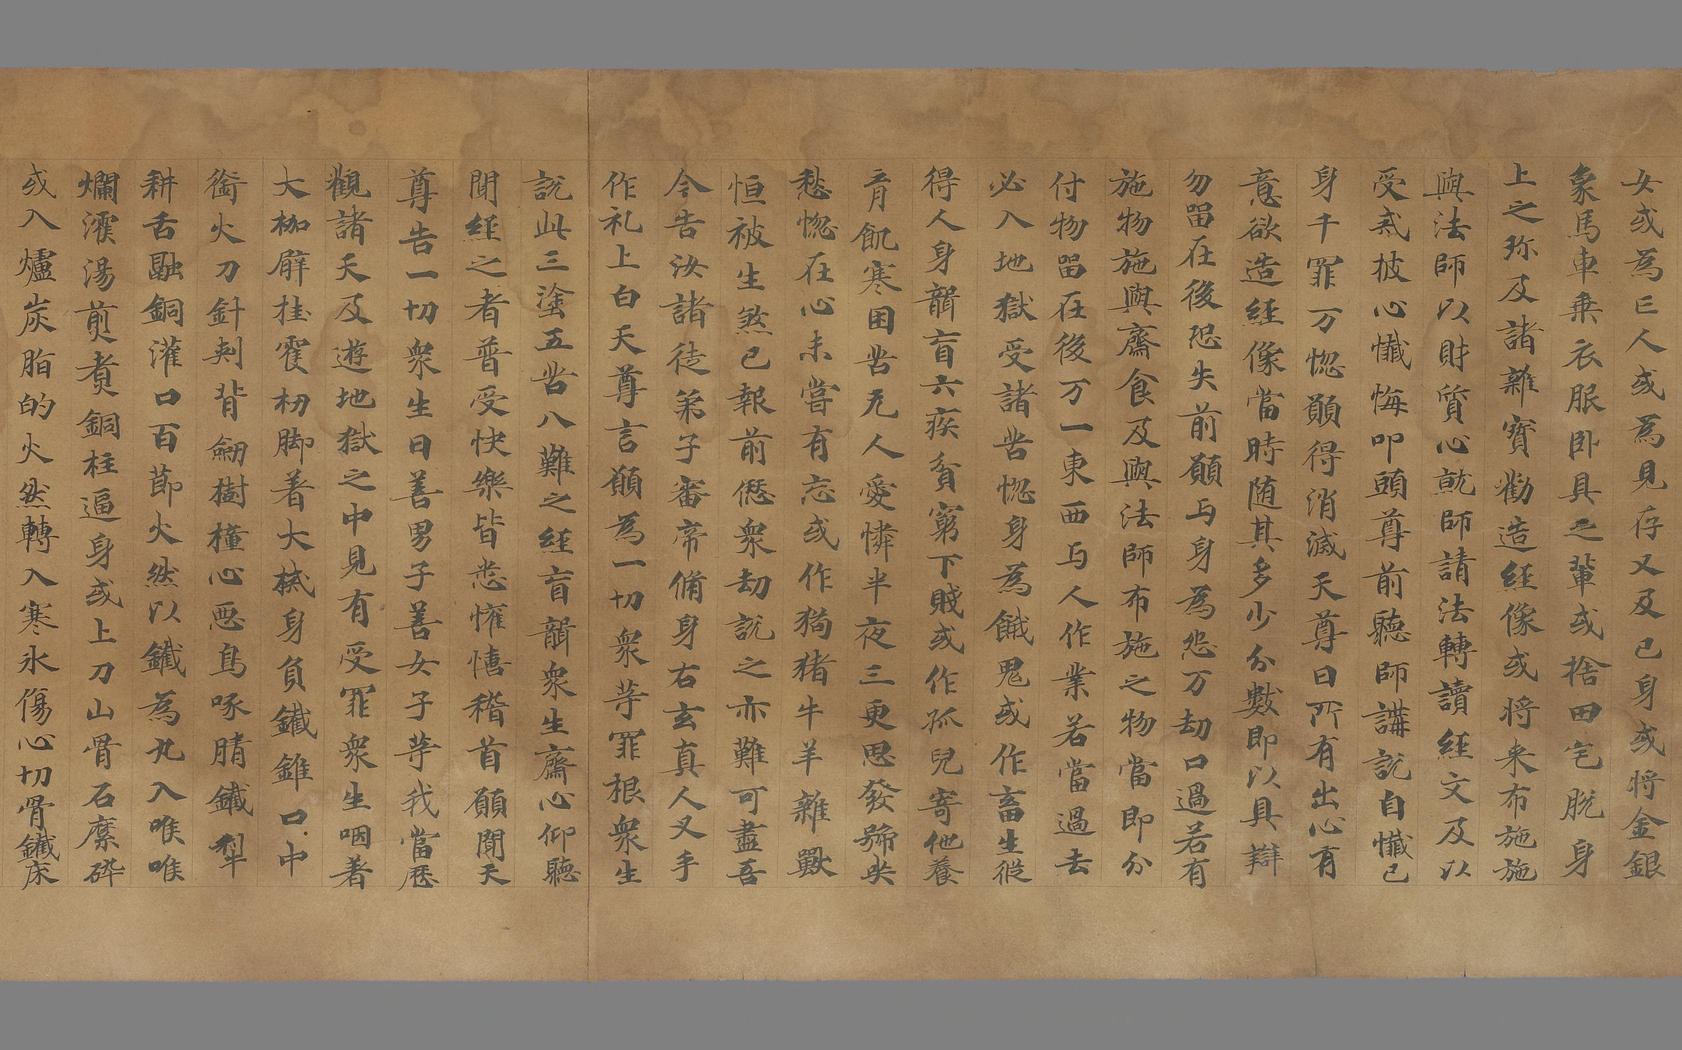 女或為亡人或為見存又及已身或將金銀
象馬車乗衣服卧具之輩或捨田宅脱身
上之珎及諸雜寶勸造經像或將来布施施
與法師以財質心就師請法轉讀經文及以
受戒披心懺悔叩頭尊前聽師講說自懺已
身千罪万惚願得消滅天尊曰所有出心有
意欲造經像當時随其多少分數即以具辯
勿留在後恐失前願与身為怨万劫口過若有
施物施與齋食及與法師布施之物當即分
付物留在後万一東西与人作業若當過去
必入地獄受諸苦惚身為餓鬼或作畜生從
得人身聾盲六疾貧窮下賤或作孤兒寄他養
育飢寒困苦无人愛憐半夜三更思發號哭
愁惚在心未嘗有忘或作猪牛羊雜獸
恒被生煞已報前𠎝衆劫說之亦難可盡吾
今告汝諸徒弟子審帝脩身右玄真人叉手
作礼上白天尊言願為一切衆䓁罪根衆生
說此三塗五苦八難之經盲聾衆生齋心仰聽
聞經之者普受快樂皆悉懽憘稽首願聞天
尊告一切衆生曰善男子善女子䓁我當歷
觀諸天及遊地獄之中見有受罪衆生咽著
大枷臂桂杻脚著大械身負鐵錐口中
銜火刀針刾背劒樹橦心惡鳥啄睛鐵犁
耕舌融銅灌口百節火然以鐵為丸入喉喉
爛濩湯煎煑銅柱逼身或上刀山骨石縻碎
或入爐炭脂的火然轉入寒氷傷心切骨鐵床